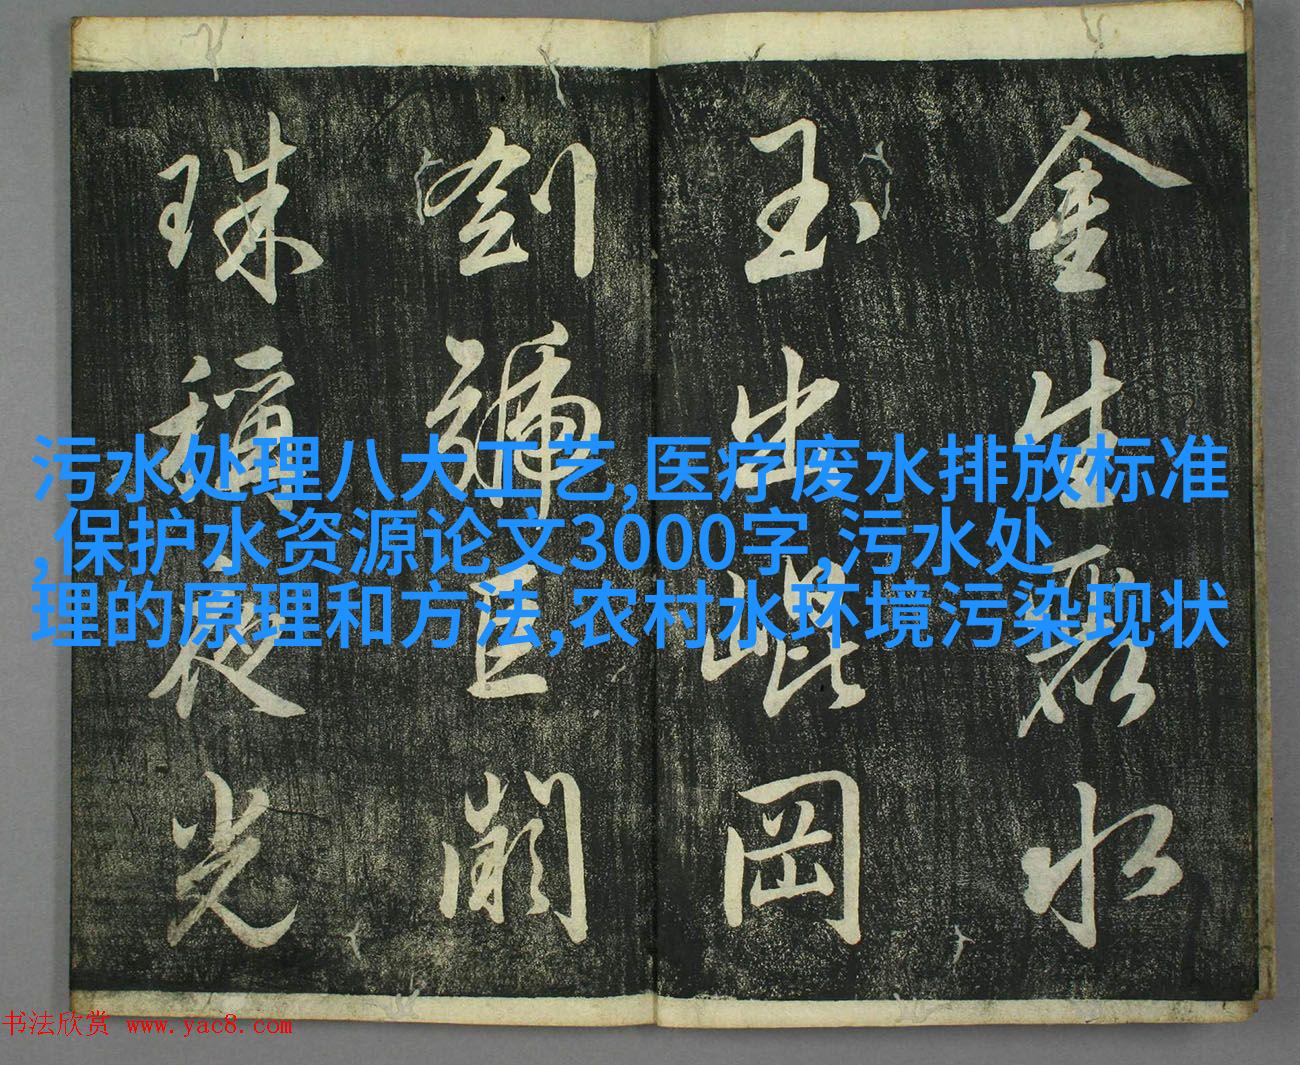 金生麗水
玉出崐岡
劍號巨闕
珠稱夜光
污水处理八大工艺,医疗废水排放标准
,保护水资源论文3000字,污水处
理的原理和方法,农村水环境污染现状
书法欣赏 www.yac8.com